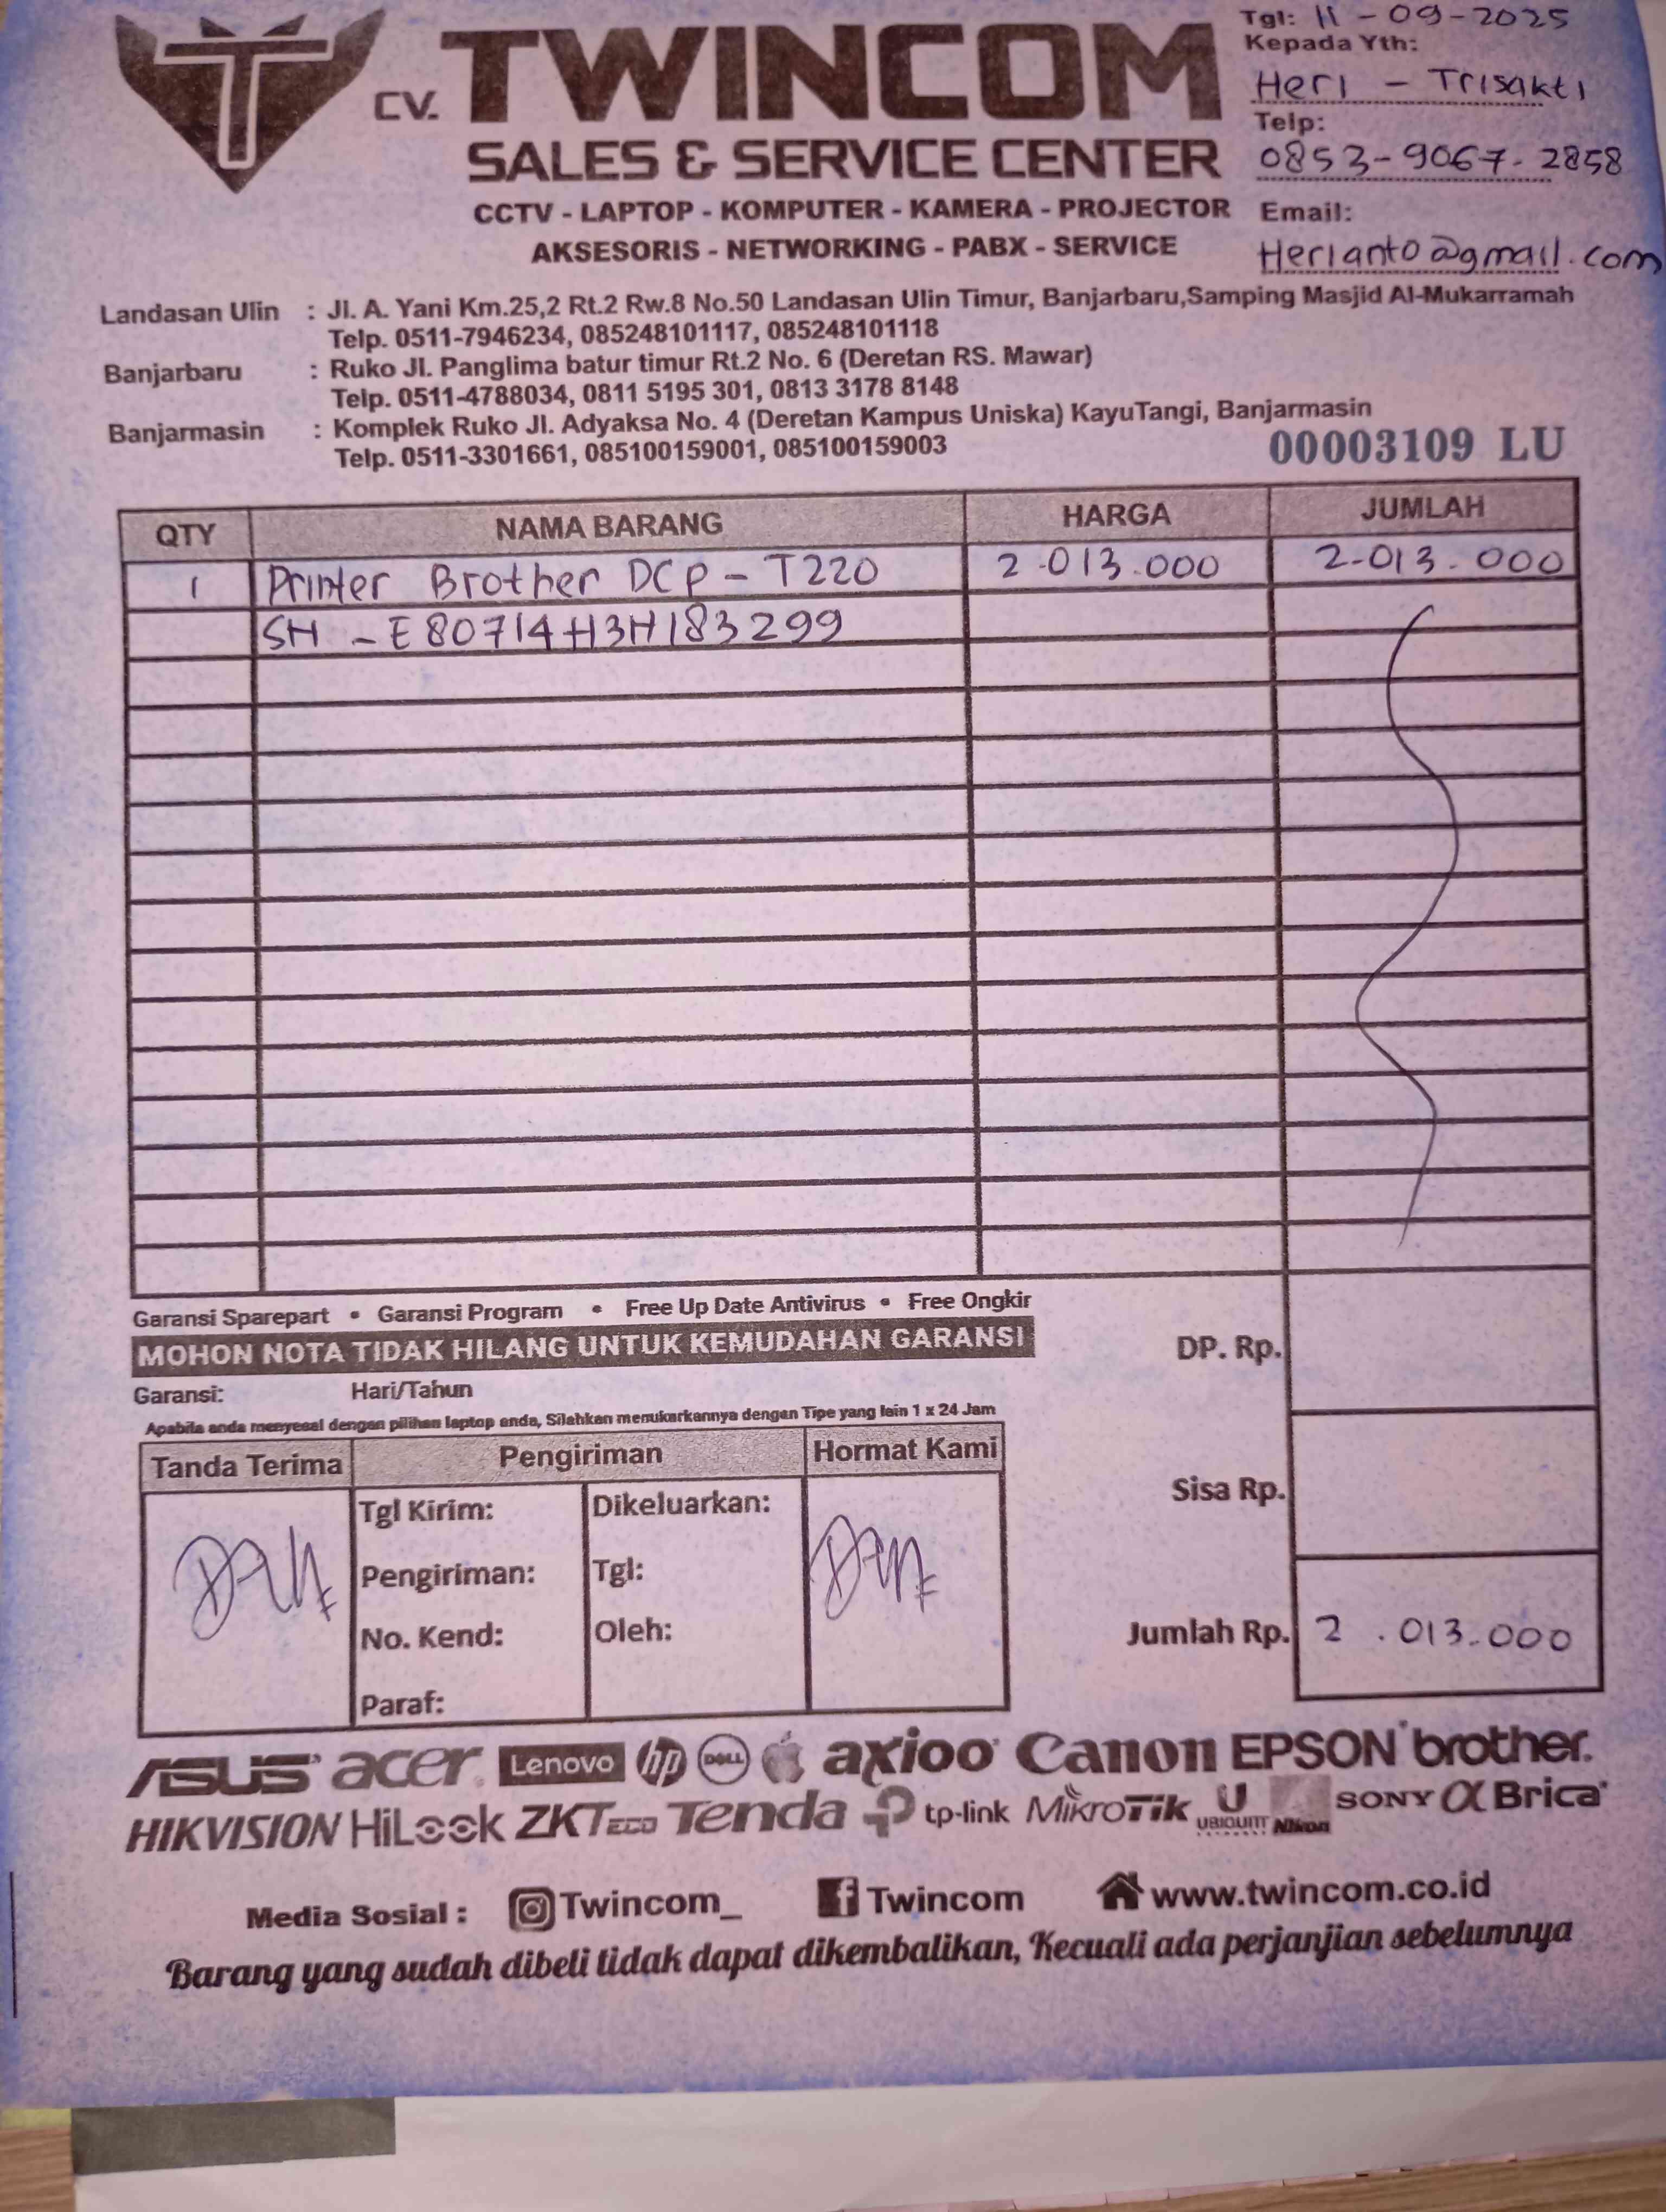 Tgl: 11 - 09 - 2025
Kepada Yth:
Heri - Trisakti
Telp:
0853-9067-2858
Email:
Herianto@gmail.com
CV. TWINCOM
SALES & SERVICE CENTER
CCTV - LAPTOP - KOMPUTER - KAMERA - PROJECTOR
AKSESORIS - NETWORKING - PABX - SERVICE
Landasan Ulin : Jl. A. Yani Km.25,2 Rt.2 Rw.8 No.50 Landasan Ulin Timur, Banjarbaru,Samping Masjid Al-Mukarramah
Telp. 0511-7946234, 085248101117, 085248101118
Banjarbaru : Ruko Jl. Panglima batur timur Rt.2 No. 6 (Deretan RS. Mawar)
Telp. 0511-4788034, 0811 5195 301, 0813 3178 8148
Banjarmasin : Komplek Ruko Jl. Adyaksa No. 4 (Deretan Kampus Uniska) KayuTangi, Banjarmasin
Telp. 0511-3301661, 085100159001, 085100159003
00003109 LU
QTY NAMA BARANG HARGA JUMLAH
1 Printer Brother DCP - T220 2.013.000 2.013.000
SH - E80714H3H183299
Garansi Sparepart • Garansi Program • Free Up Date Antivirus • Free Ongkir
MOHON NOTA TIDAK HILANG UNTUK KEMUDAHAN GARANSI
Garansi: Hari/Tahun
Apabila anda menyesal dengan pilihan laptop anda, Silahkan menukarkannya dengan Tipe yang lain 1 x 24 Jam
DP. Rp.
Sisa Rp.
Jumlah Rp. 2.013.000
Tanda Terima Pengiriman Hormat Kami
Tgl Kirim: Dikeluarkan:
Pengiriman: Tgl:
No. Kend: Oleh:
Paraf:
ASUS acer Lenovo hp DELL axioo Canon EPSON brother
HIKVISION HiLook ZKTECO Tenda tp-link MikroTik UBIQUITI Nikon SONY α Brica
Media Sosial : Twincom_ Twincom www.twincom.co.id
Barang yang sudah dibeli tidak dapat dikembalikan, Kecuali ada perjanjian sebelumnya